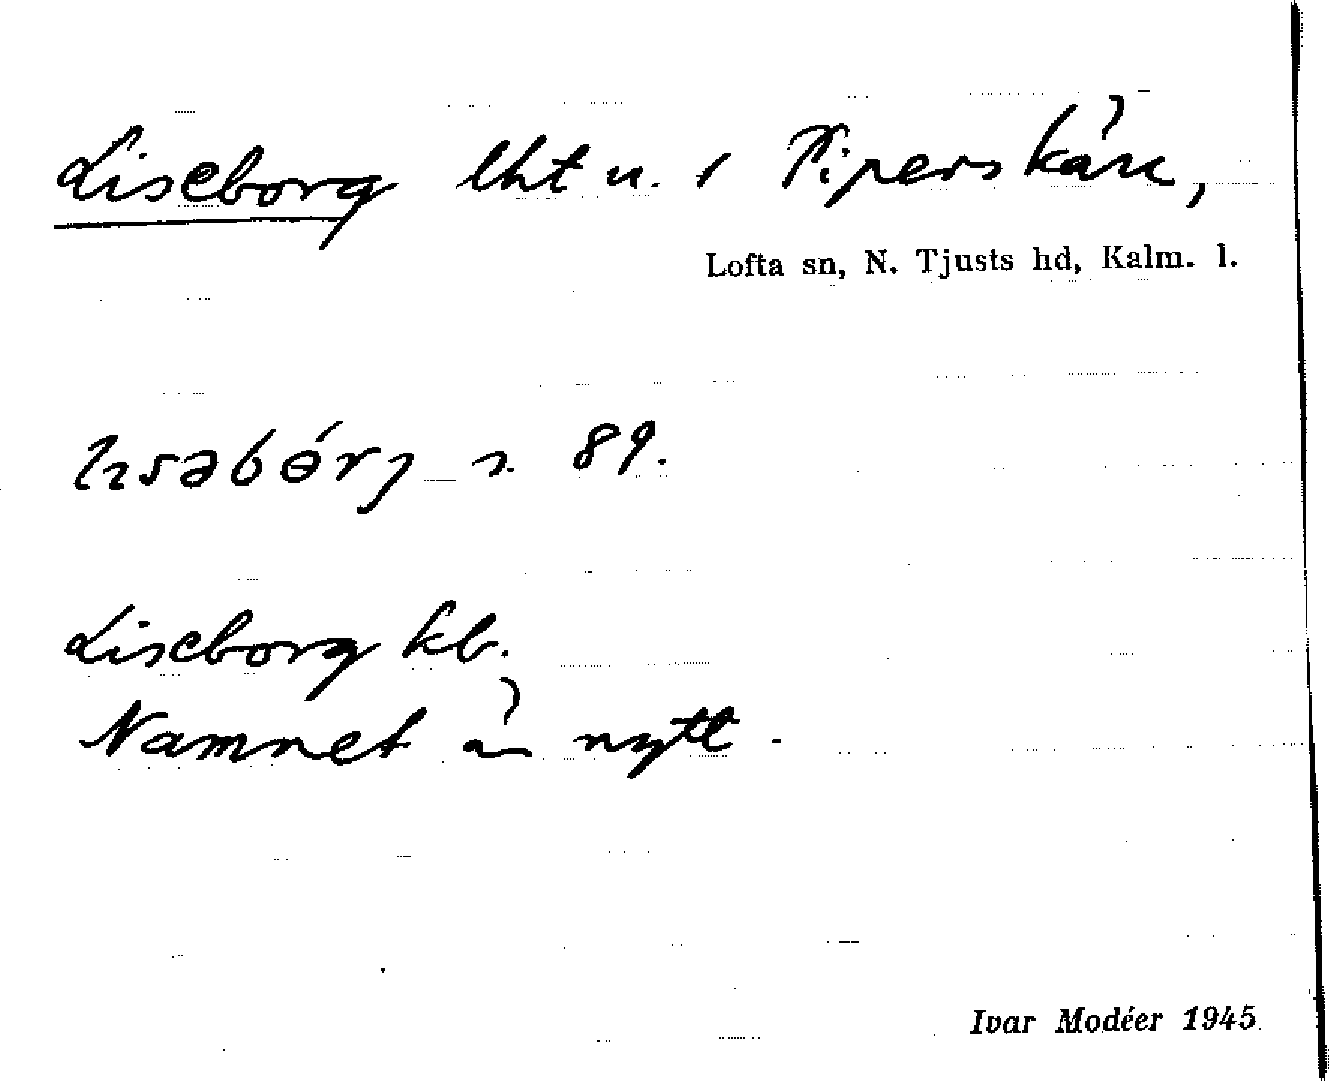 Liseborg lht u. 1 Piperskärr,
Lofta sn, N. Tjusts hd, Kalm. l.
89.
Liseborg kb.
Namnet är nytt.
Ivar Modéer 1945